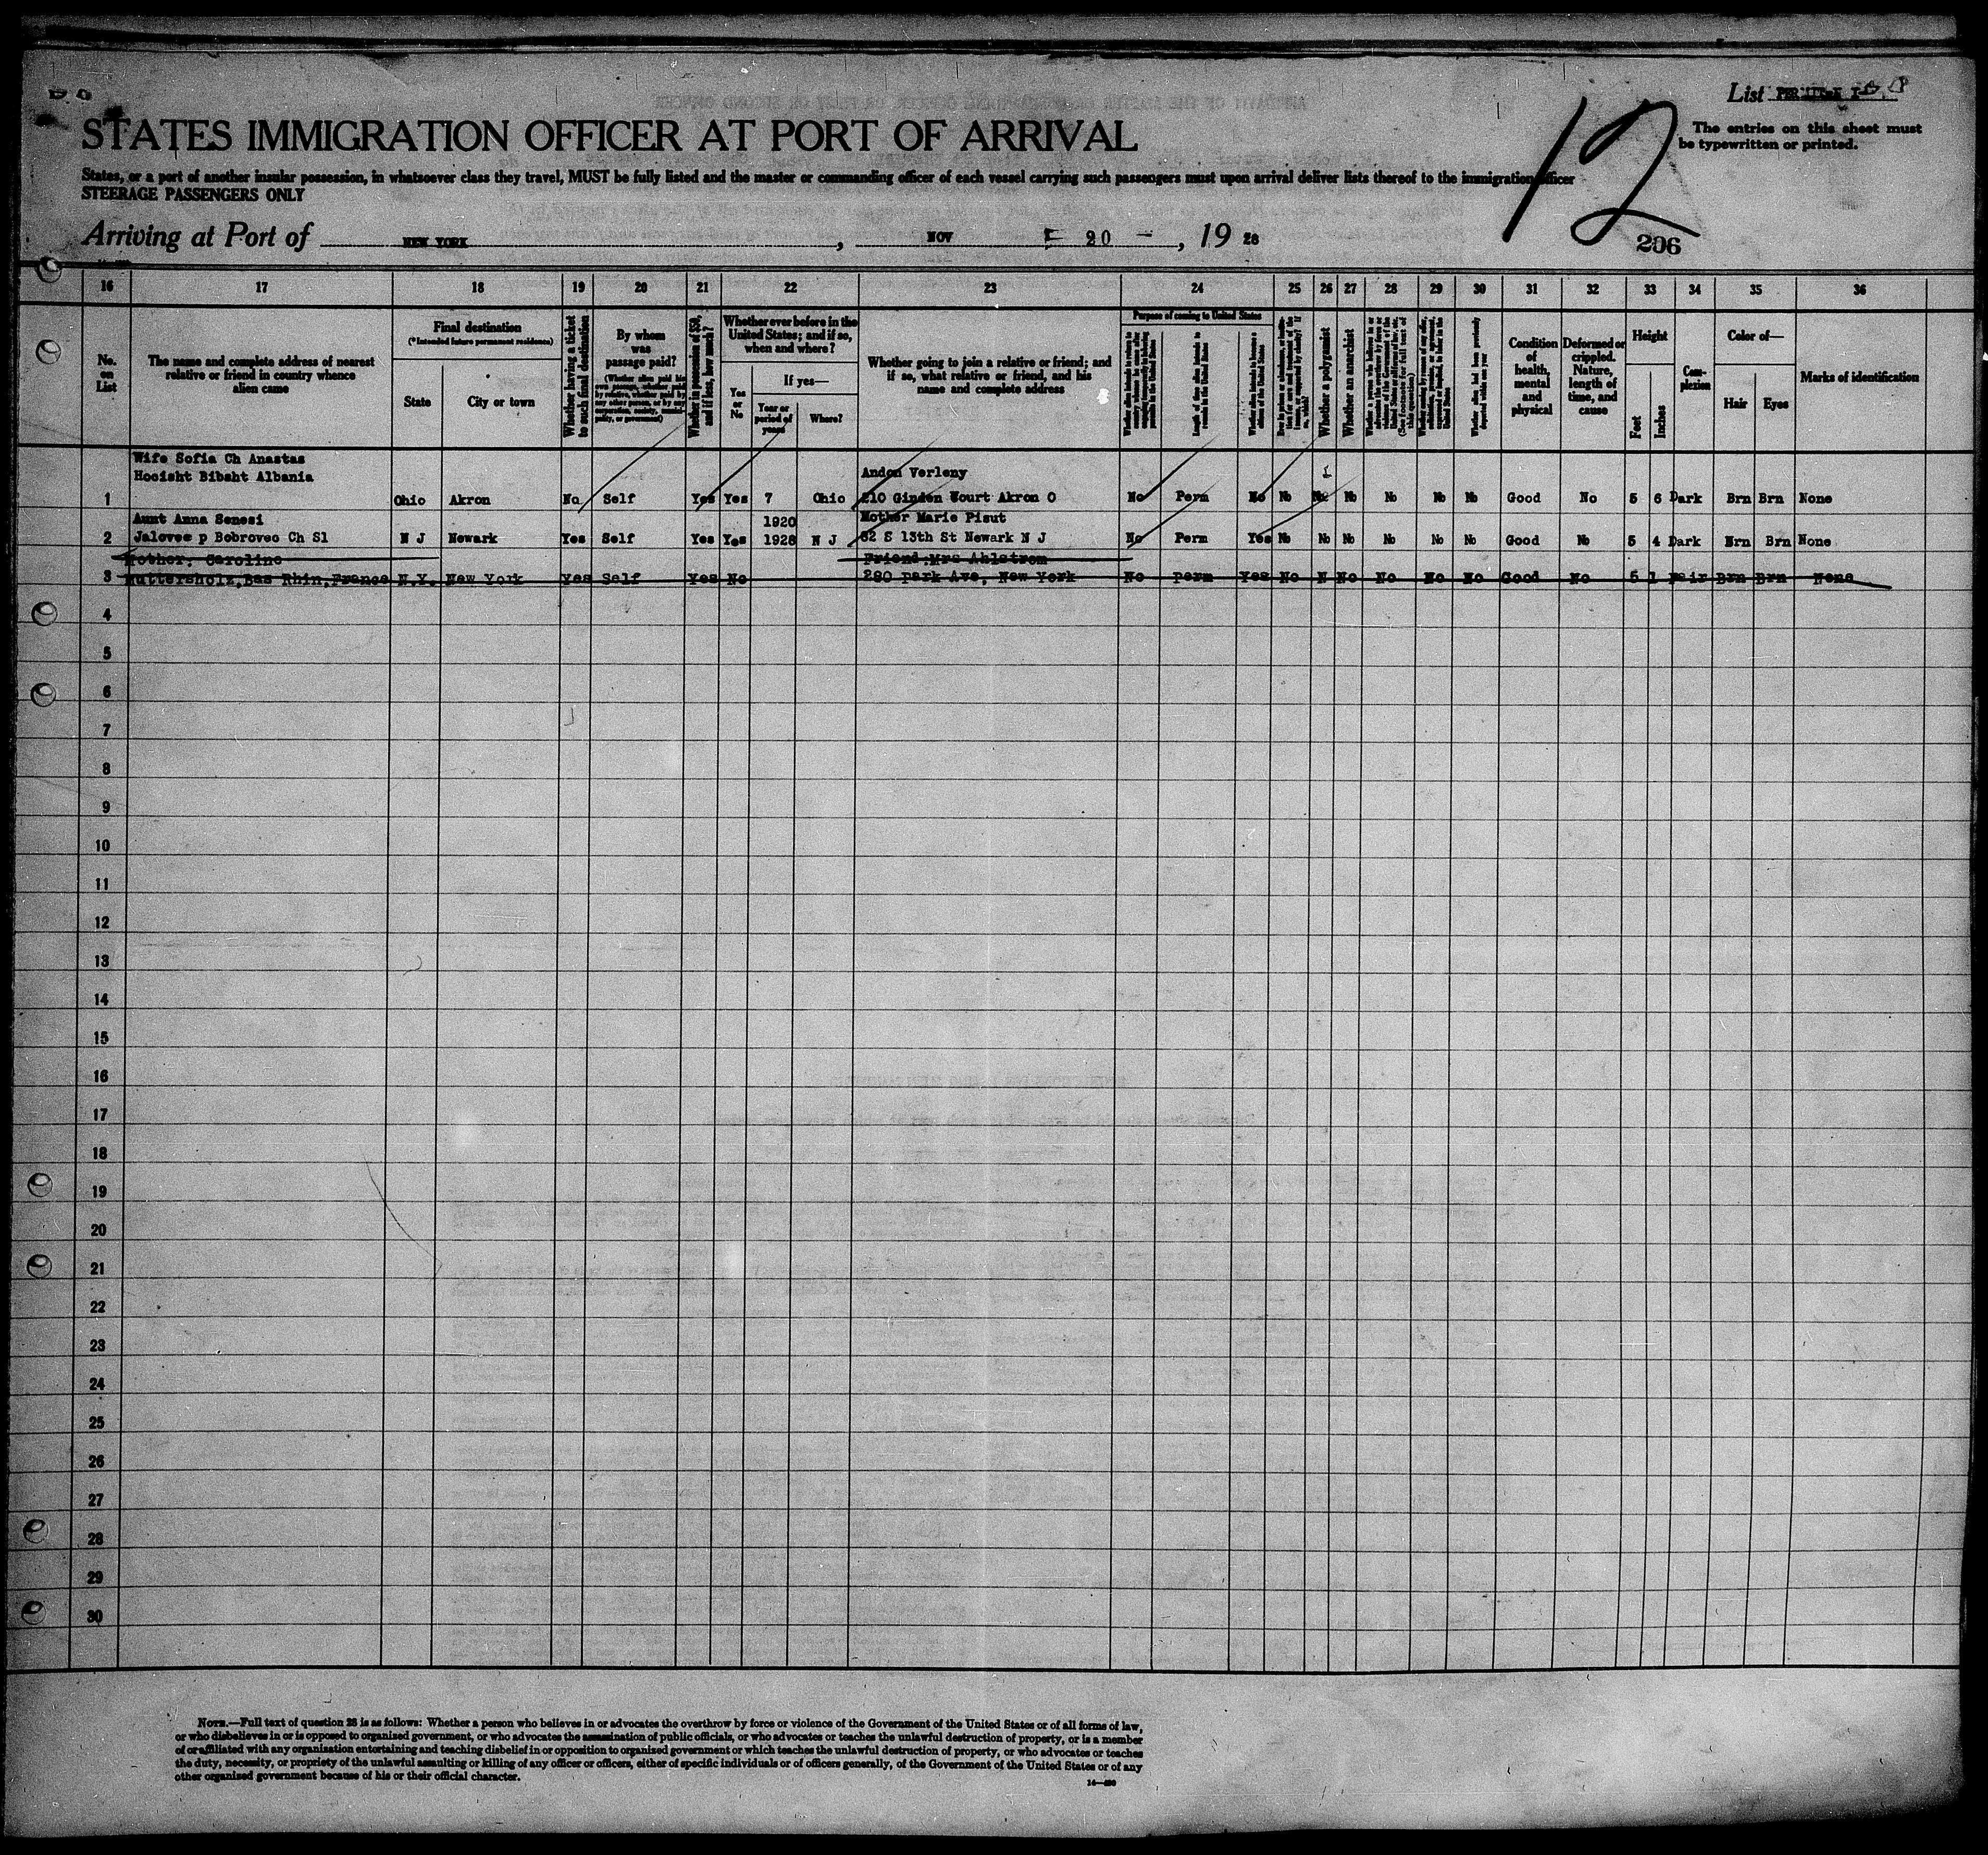 List
The entries on this sheet must
be typewritten or printed.
12
STATES IMMIGRATION OFFICER AT PORT OF ARRIVAL
States, or a port of another insular possession, in whatsoever class they travel, MUST be fully listed and the master or commanding officer of each vessel carrying such passengers must upon arrival deliver lists thereof to the immigration officer
STEERAGE PASSENGERS ONLY
Arriving at Port of NEW YORK, NOV 20, 19 28
206
16 17 18 19 20 21 22 23 24 25 26 27 28 29 30 31 32 33 34 35 36
No. on List
The name and complete address of nearest relative or friend in country whence alien came
Final destination
(*Intended future permanent residence)
State
City or town
Whether having a ticket to such final destination
By whom was passage paid?
(Whether alien paid his own passage, whether paid by relative, whether paid by any other person, or by any corporation, society, municipality, or government)
Whether in possession of $50, and if less, how much?
Whether ever before in the United States; and if so, when and where?
Yes or No
If yes—
Year or period of years
Where?
Whether going to join a relative or friend; and if so, what relative or friend, and his name and complete address
Purpose of coming to United States
Length of time alien intends to remain in the United States
Whether alien intends to become a citizen of the United States
Whether a polygamist
Whether an anarchist
Whether alien had been previously deported within one year
Condition of health, mental and physical
Deformed or crippled. Nature, length of time, and cause
Height
Feet
Inches
Complexion
Color of—
Hair
Eyes
Marks of identification
Wife Sofia Ch Anastas
Hocisht Bibsht Albania
Andon Verleny
1 Ohio Akron No Self Yes Yes 7 Ohio 210 Ginden Court Akron O No Perm No No No No No No No Good No 5 6 Dark Brn Brn None
Aunt Anna Senesi 1920 Mother Marie Pisut
2 Jalovec p Bobroveo Ch Sl N J Newark Yes Self Yes Yes 1928 N J 62 S 13th St Newark N J No Perm Yes No No No No No No Good No 5 4 Dark Brn Brn None
Mother: Caroline Friend:Mrs Ahlstrom
3 Muttersholz,Bas Rhin,France N.Y. New York Yes Self Yes No 280 Park Ave, New York No perm Yes No N No No No No Good No 5 1 Fair Brn Brn None
4
5
6
7
8
9
10
11
12
13
14
15
16
17
18
19
20
21
22
23
24
25
26
27
28
29
30
NOTE.—Full text of question 28 is as follows: Whether a person who believes in or advocates the overthrow by force or violence of the Government of the United States or of all forms of law,
or who disbelieves in or is opposed to organized government, or who advocates the assassination of public officials, or who advocates or teaches the unlawful destruction of property, or is a member
of or affiliated with any organization entertaining and teaching disbelief in or opposition to organized government or which teaches the unlawful destruction of property, or who advocates or teaches
the duty, necessity, or propriety of the unlawful assaulting or killing of any officer or officers, either of specific individuals or of officers generally, of the Government of the United States or of any
other organized government because of his or their official character.